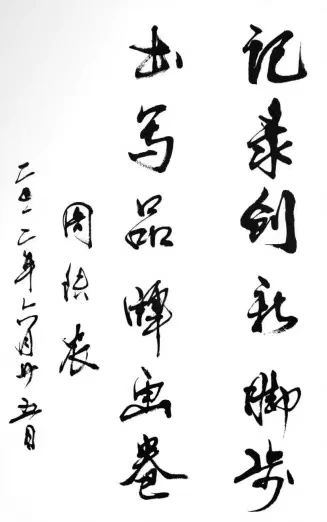 记录创新脚步
书写品牌画卷
周铁农
二〇一二年六月廿五日